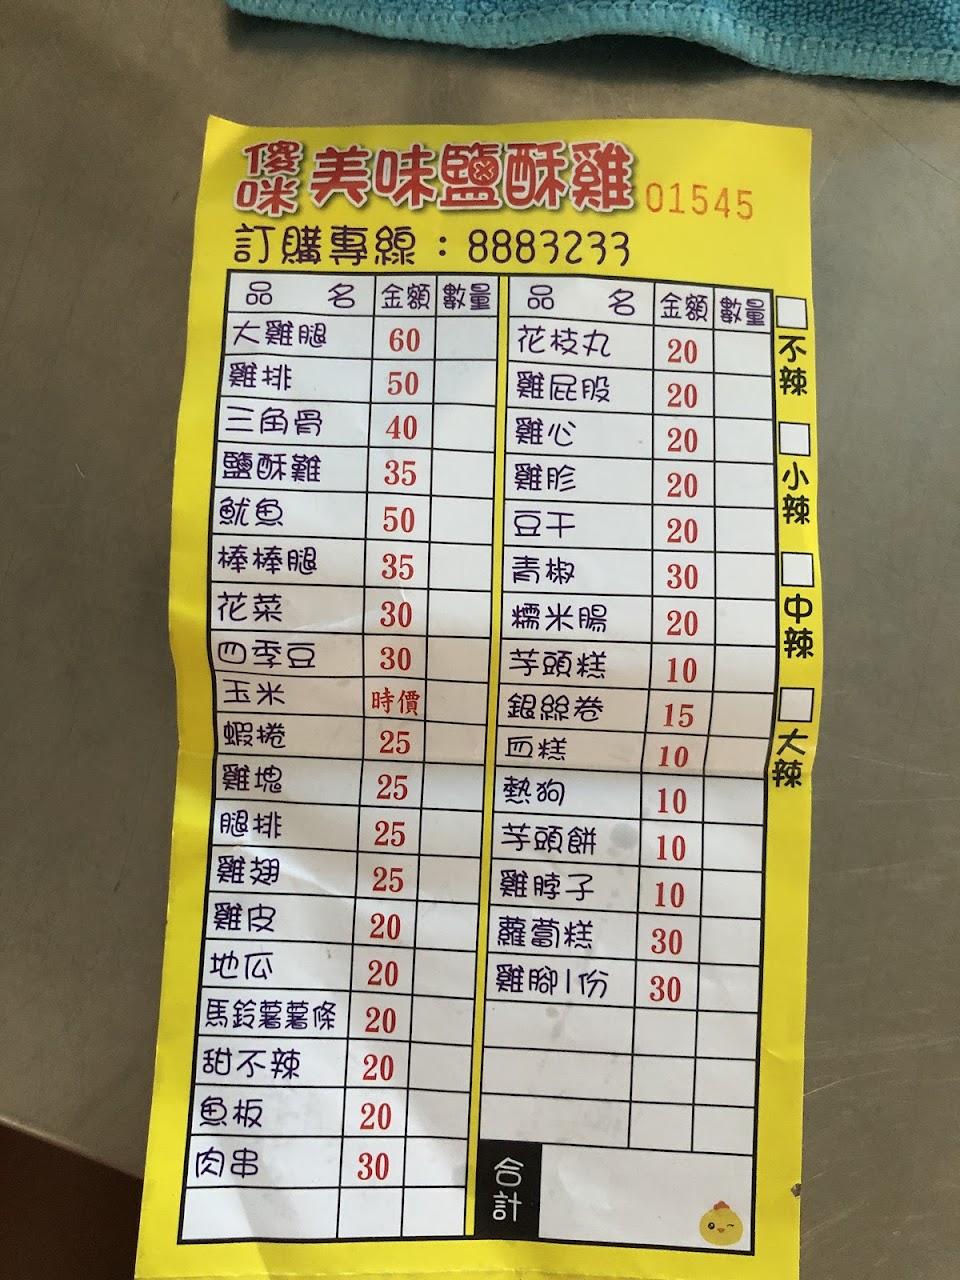 傻咪 美味鹽酥雞 01545
訂購專線：8883233
品名 金額 數量
大雞腿 60
雞排 50
三角骨 40
鹽酥雞 35
魷魚 50
棒棒腿 35
花菜 30
四季豆 30
玉米 時價
蝦捲 25
雞塊 25
腿排 25
雞翅 25
雞皮 20
地瓜 20
馬鈴薯薯條 20
甜不辣 20
魚板 20
肉串 30
品名 金額 數量
花枝丸 20
雞屁股 20
雞心 20
雞胗 20
豆干 20
青椒 30
糯米腸 20
芋頭糕 10
銀絲卷 15
血糕 10
熱狗 10
芋頭餅 10
雞脖子 10
蘿蔔糕 30
雞腳1份 30
合計
不辣
小辣
中辣
大辣